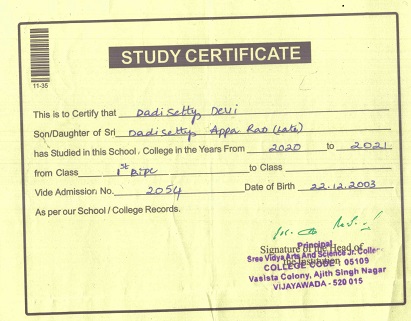 11-35
STUDY CERTIFICATE
This is to Certify that Dadisetty Devi
Son/Daughter of Sri Dadisetty Appa Rao (Late)
has Studied in this School / College in the Years From 2020 to 2021
from Class 1st Bipc to Class
Vide Admission No. 2054 Date of Birth 22.12.2003
As per our School / College Records.
Signature of the Head of
the Institution
Principal
Sree Vidya Arts And Science Jr. College
COLLEGE CODE: 05109
Vasista Colony, Ajith Singh Nagar
VIJAYAWADA - 520 015